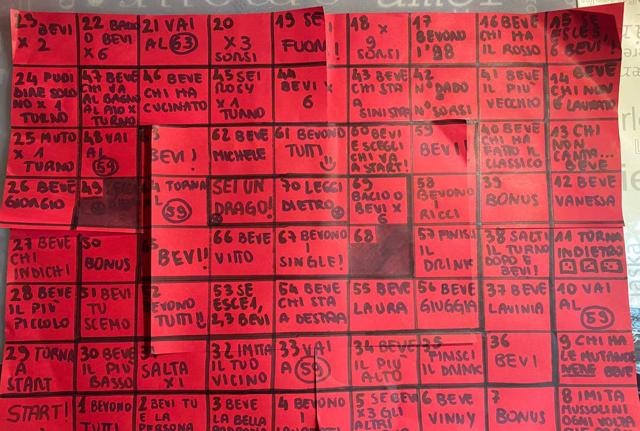 23 BEVI x 2
22 BACIO O BEVI x 6
21 VAI AL 63
20 x 3 SORSI
19 SE FUORI!
18 x 9 SORSI
17 BEVONO I '98
16 BEVE CHI HA IL ROSSO
15 SE ESCE 1, 6 BEVI!
24 PUOI DIRE SOLO NO x 1 TURNO
47 BEVE CHI VA AL BAGNO AL TURNO
46 BEVE CHI HA CUCINATO
45 SEI ROSY x 1 TURNO
44 BEVI x 6
43 BEVE CHI STA A SINISTRA
42 N° DADO = N° SORSI
41 BEVE IL PIU' VECCHIO
14 BEVE CHI NON È LAUREATO
25 MUTO x 1 TURNO
48 VAI AL 59
BEVI!
62 BEVE MICHELE
61 BEVONO TUTTI
60 BEVI E SCEGLI CHI VA A START!
59 BEVI!
40 BEVE CHI HA FATTO IL CLASSICO
13 CHI NON CANTA... BEVE
26 BEVE GIORGIO
49
TORNA AL 59
SEI UN DRAGO!
70 LEGGI DIETRO
69 BACIO O BEVI x 6
58 BEVONO I RICCI
39 BONUS
12 BEVE VANESSA
27 BEVE CHI INDICHI
50 BONUS
65 BEVI!
66 BEVE VITO
67 BEVONO I SINGLE!
68
57 FINISCI IL DRINK
38 SALTI IL TURNO DOPO E BEVI!
11 TORNA INDIETRO
28 BEVE IL PIU' PICCOLO
51 BEVI TU SCEMO
52 BEVONO TUTTI!
53 SE ESCE 1, 2, 3 BEVI
54 BEVE CHI STA A DESTRA
55 BEVE LAURA
56 BEVE GIUGGIA
37 BEVE LAVINIA
10 VAI AL 59
29 TORNA A START
30 BEVE IL PIU' BASSO
31 SALTA x 1
32 IMITA IL TUO VICINO
33 VAI A 59
34 BEVE IL PIU' ALTO
35 FINISCI IL DRINK
36 BEVI
9 CHI HA LE MUTANDE NERE BEVE
START!
1 BEVONO TUTTI
2 BEVI TU E LA PERSONA
3 BEVE LA BELLA
4 BEVONO I
5 SE BEVI x 3 GLI ALTRI
6 BEVE VINNY
7 BONUS
8 IMITA MUSSOLINI OGNI VOLTA